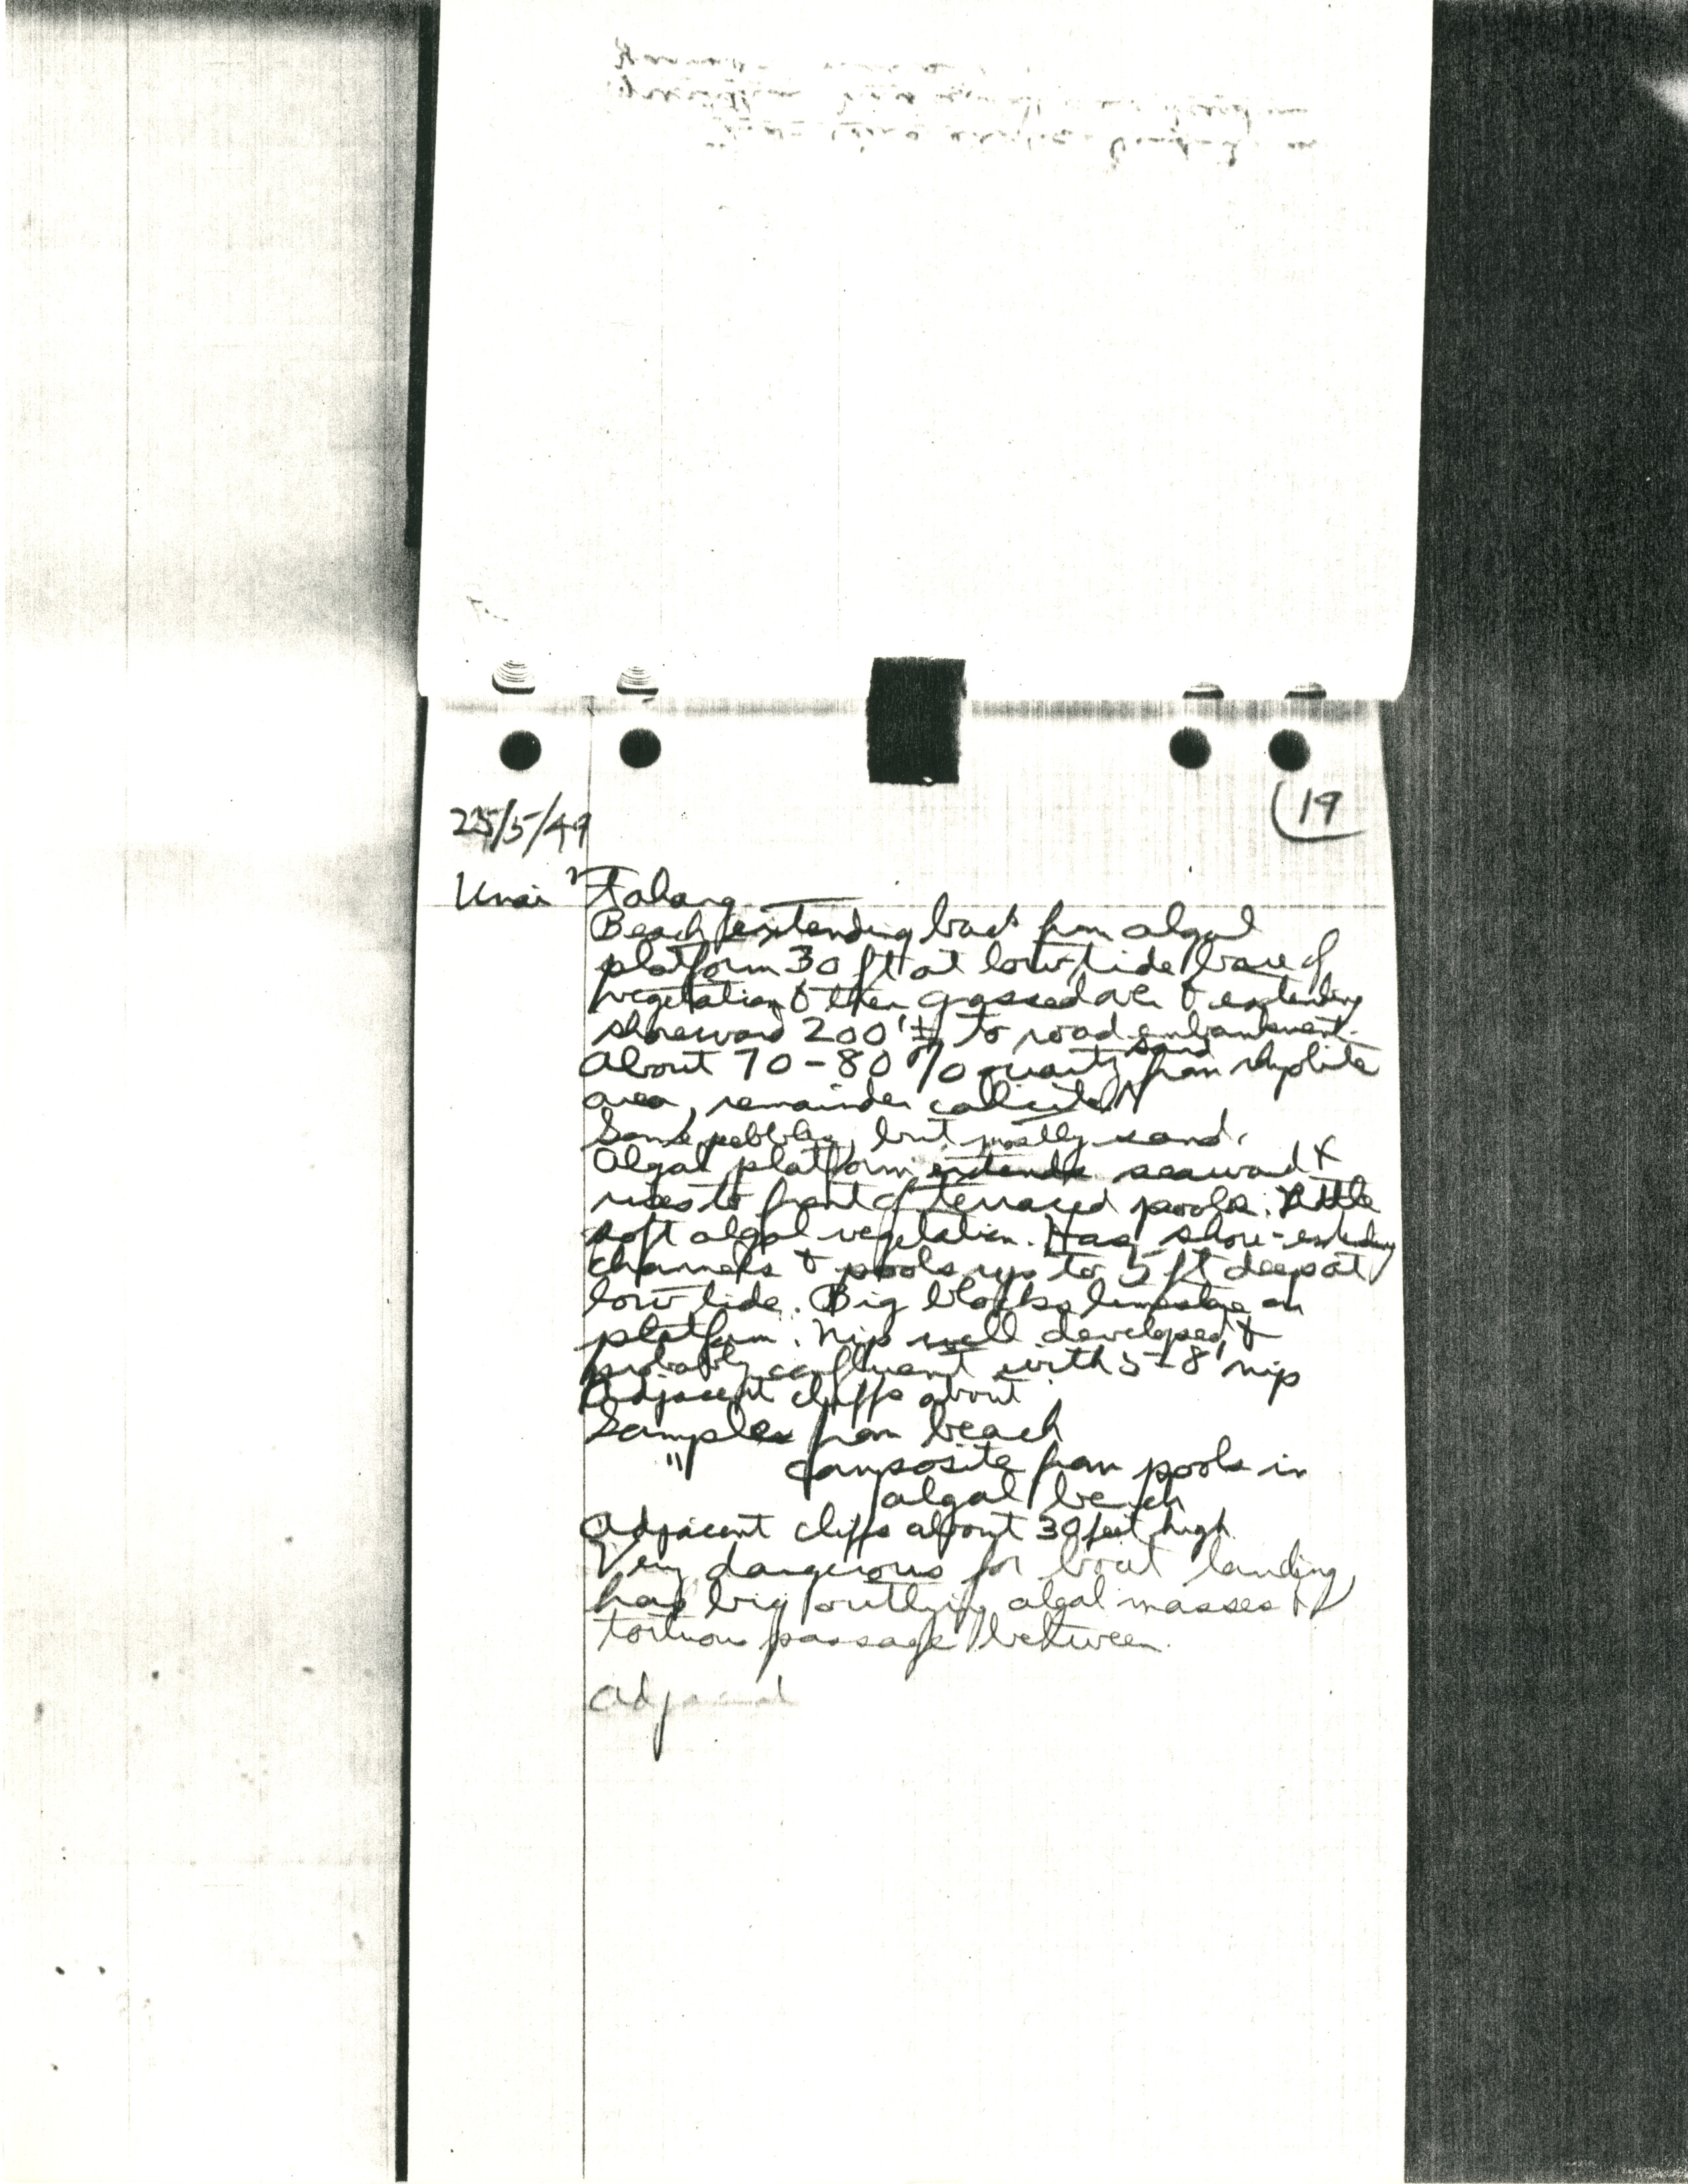 25/5/49
19
Unai Fahang
Beach extending back from algal
platform 30 ft at low tide bare of
vegetation & then grassed over & extending
shoreward 200'± to road embankment.
About 70-80% quartz sand from rhyolite
area, remainder calcite
Some pebbles, but mostly sand.
Algal platform extends seaward &
rises to front of terraced pools. Little
soft algal vegetation. Has shore-extending
channels & pools up to 5 ft deep at
low tide. Big blocks limestone on
platform. Nip well developed &
probably confluent with 5-8' nip
Adjacent cliffs about
Samples from beach
" composite from pools in
algal bench
Adjacent cliffs about 30 feet high.
Very dangerous for boat landing,
has big outlying algal masses &
tortuous passage between.
Adjacent